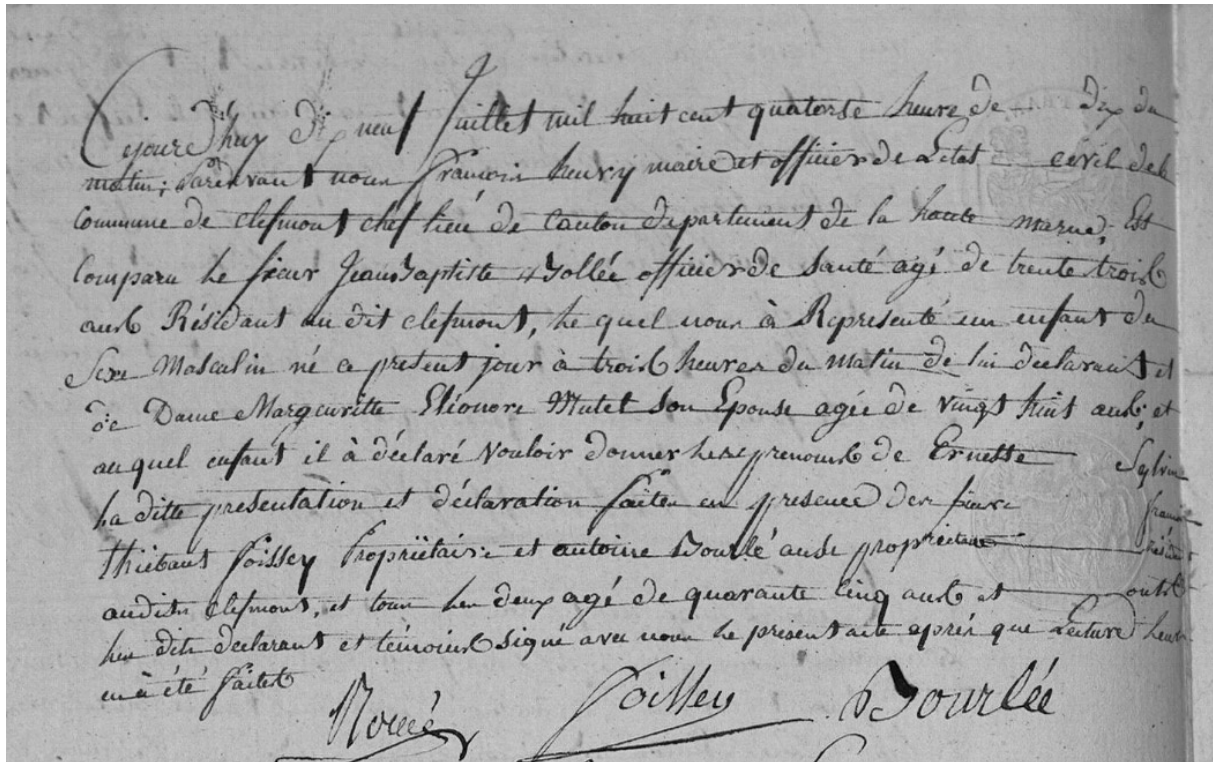 Cejourd'huy dix neuf Juillet mil huit cent quatorse heure de dix du
matin; Pardevant nous françois henry maire et officier de Letat civil de la
Commune de clefmont chef lieu de canton departement de la haute marne, Est
Comparu le sieur Jean Baptiste officier de santé agé de trente trois
ans Résidant au dit clefmont, le quel nous à Representé un enfant du
Sexe Masculin né ce present jour à trois heures du matin de lui declarant et
de Dame Margueritte Eléonore Mutel son Epouse agée de vingt huit ans; et
au quel enfant il à déclaré vouloir donner les prenoms de Erneste Sylvin
la ditte presentation et déclaration faites en presence des sieurs françois
thiebaut foissey Propriétaire et antoine Bourlé aussi propriétaire résidant
audits clefmont, et tous les deux agé de quarante cinq ans et ont
les dits declarant et témoins signé avec nous le present acte après que Lecture leur
en à été faites
foissey Bourlée